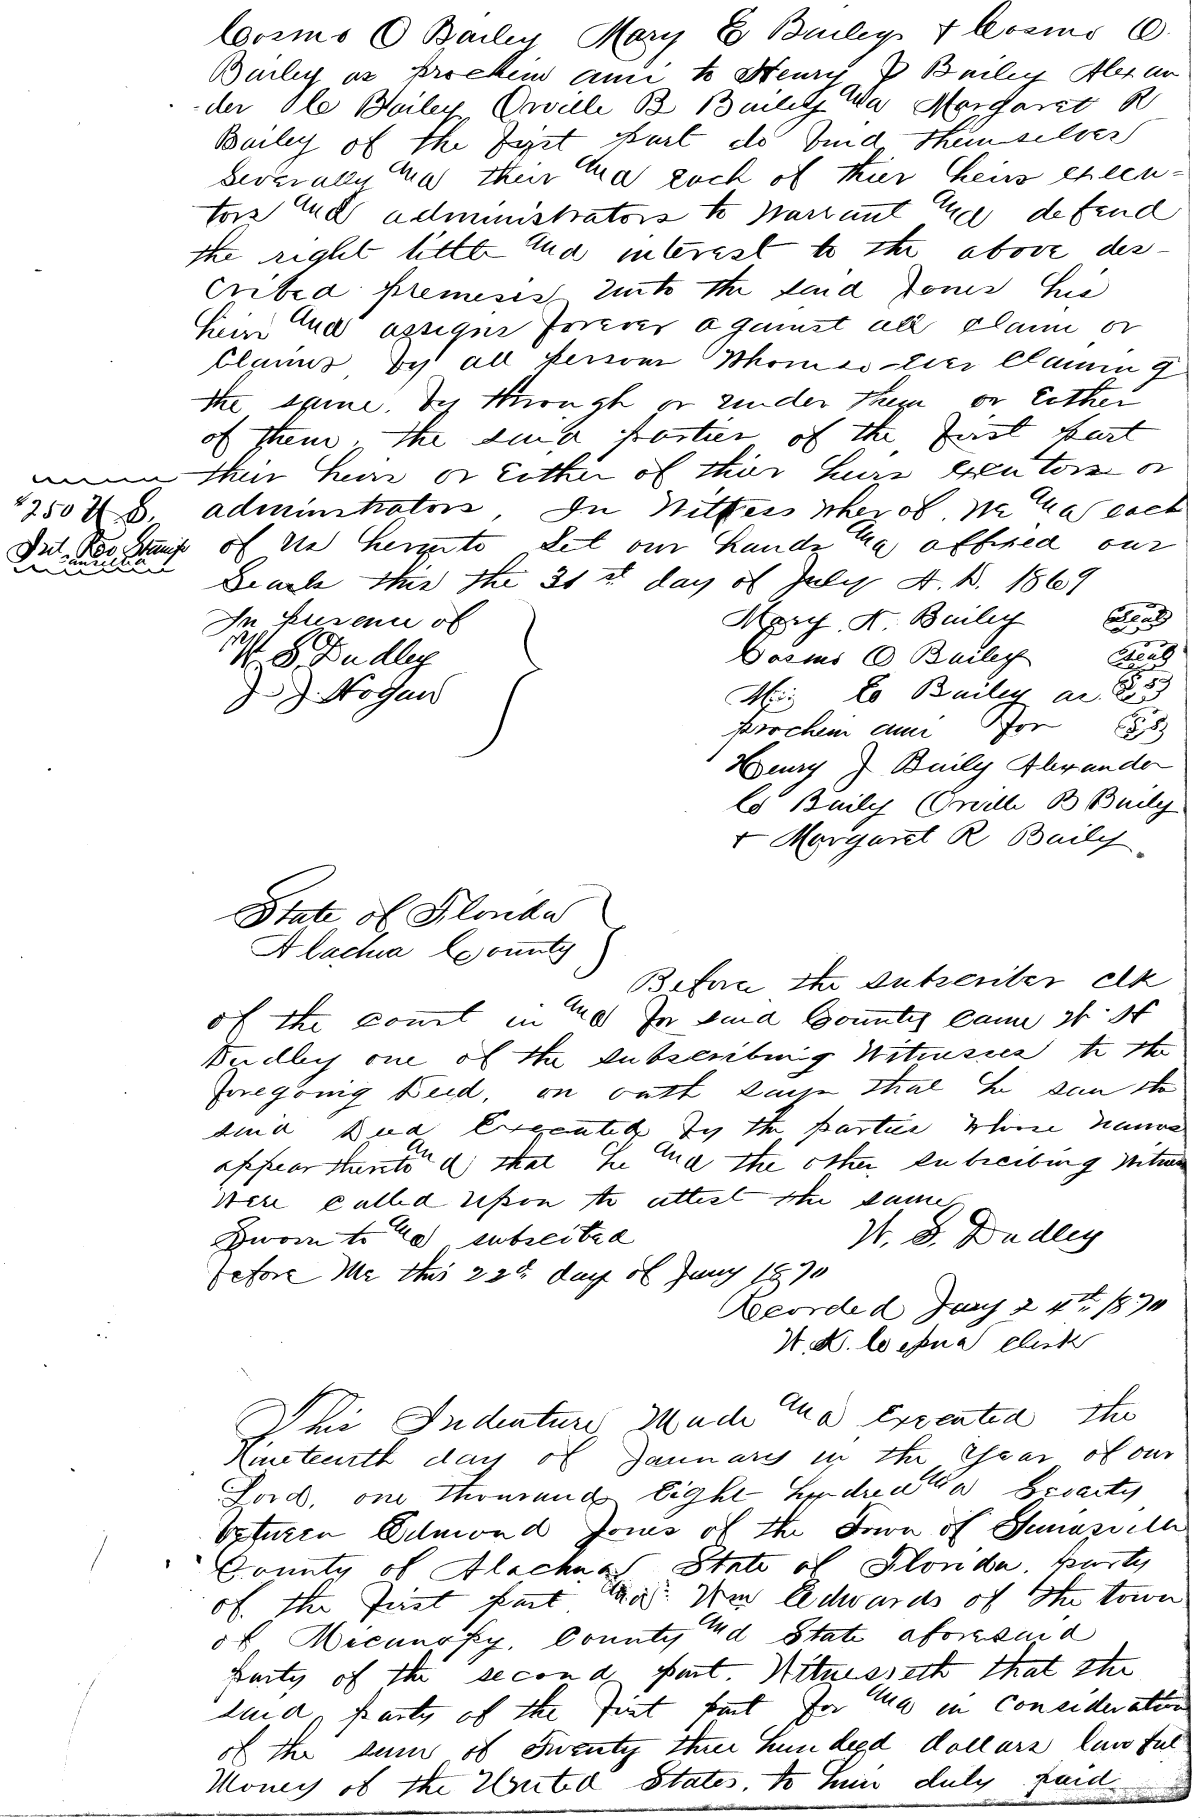 Cosmo O Bailey Mary E Bailey & Cosmo O.
Bailey as prochein ami to Henry J Bailey Alexan
-der C Bailey Orville B Bailey and Margaret R
Bailey of the first part do bind themselves
severally and their and each of thier heirs execu-
tors and administrators to warrant and defend
the right tittle and interest to the above des-
cribed premesis unto the said Jones his
heirs and assigns forever against all claim or
claims by all persons whomso-ever claiming
the same. by through or under them or Either
of them, the said parties of the first part
their heirs or Either of thier heirs exeutors or
adminstrators, In Witness wherof. We and each
of us herunto Set our hands and affixed our
Seals this the 31st day of July A.D. 1869
$2.50 U.S.
Int. Rev. Stamp
cancelled
In presence of
W. S. Dudley
J. J. Hogan
Mary N. Bailey Seal
Cosmo O Bailey Seal
Bailey as
prochein ami for
Henry J Baily Alexander
C Baily Orville B Baily
& Margaret R Baily.
State of Florida
Alachua County
Before the subscriber clk
of the court in and for said County came W. H
Dudley one of the subscribing Witnesses to the
foregoing Deed, on oath says that he saw the
said Deed Executed by the parties whose names
appear thereto and that he and the other subscibing Witness
were called upon to attest the same
Sworn to and subscibed W. S. Dudley
before Me this 22d day of Jany 1870
Recorded Jany 24th 1870
W. K. Cessna clerk
This Indenture Made and Executed the
Nineteenth day of January in the Year of our
Lord, one thousand Eight hundred and Seventy
between Edmond Jones of the Town of
County of Alachua State of Florida, party
of the first part and Wm Edwards of the town
of Micanopy, County and State aforesaid
party of the second part. Witnesseth that the
said party of the first part for and in consideration
of the sum of Twenty three hundred dollars lawful
Money of the United States, to him duly paid